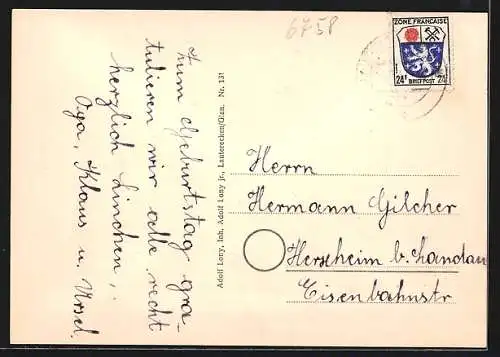 6758
ZONE FRANÇAISE
24 BRIEFPOST 24
Zum Geburtstag gra-
tulieren wir alle recht
herzlich Linchen,
Oga, Klaus u. Ursel.
Adolf Lony, Inh. Adolf Lony jr., Lauterecken/Glan. Nr. 131
Herrn
Hermann Gilcher
Herxheim b. Landau
Eisenbahnstr